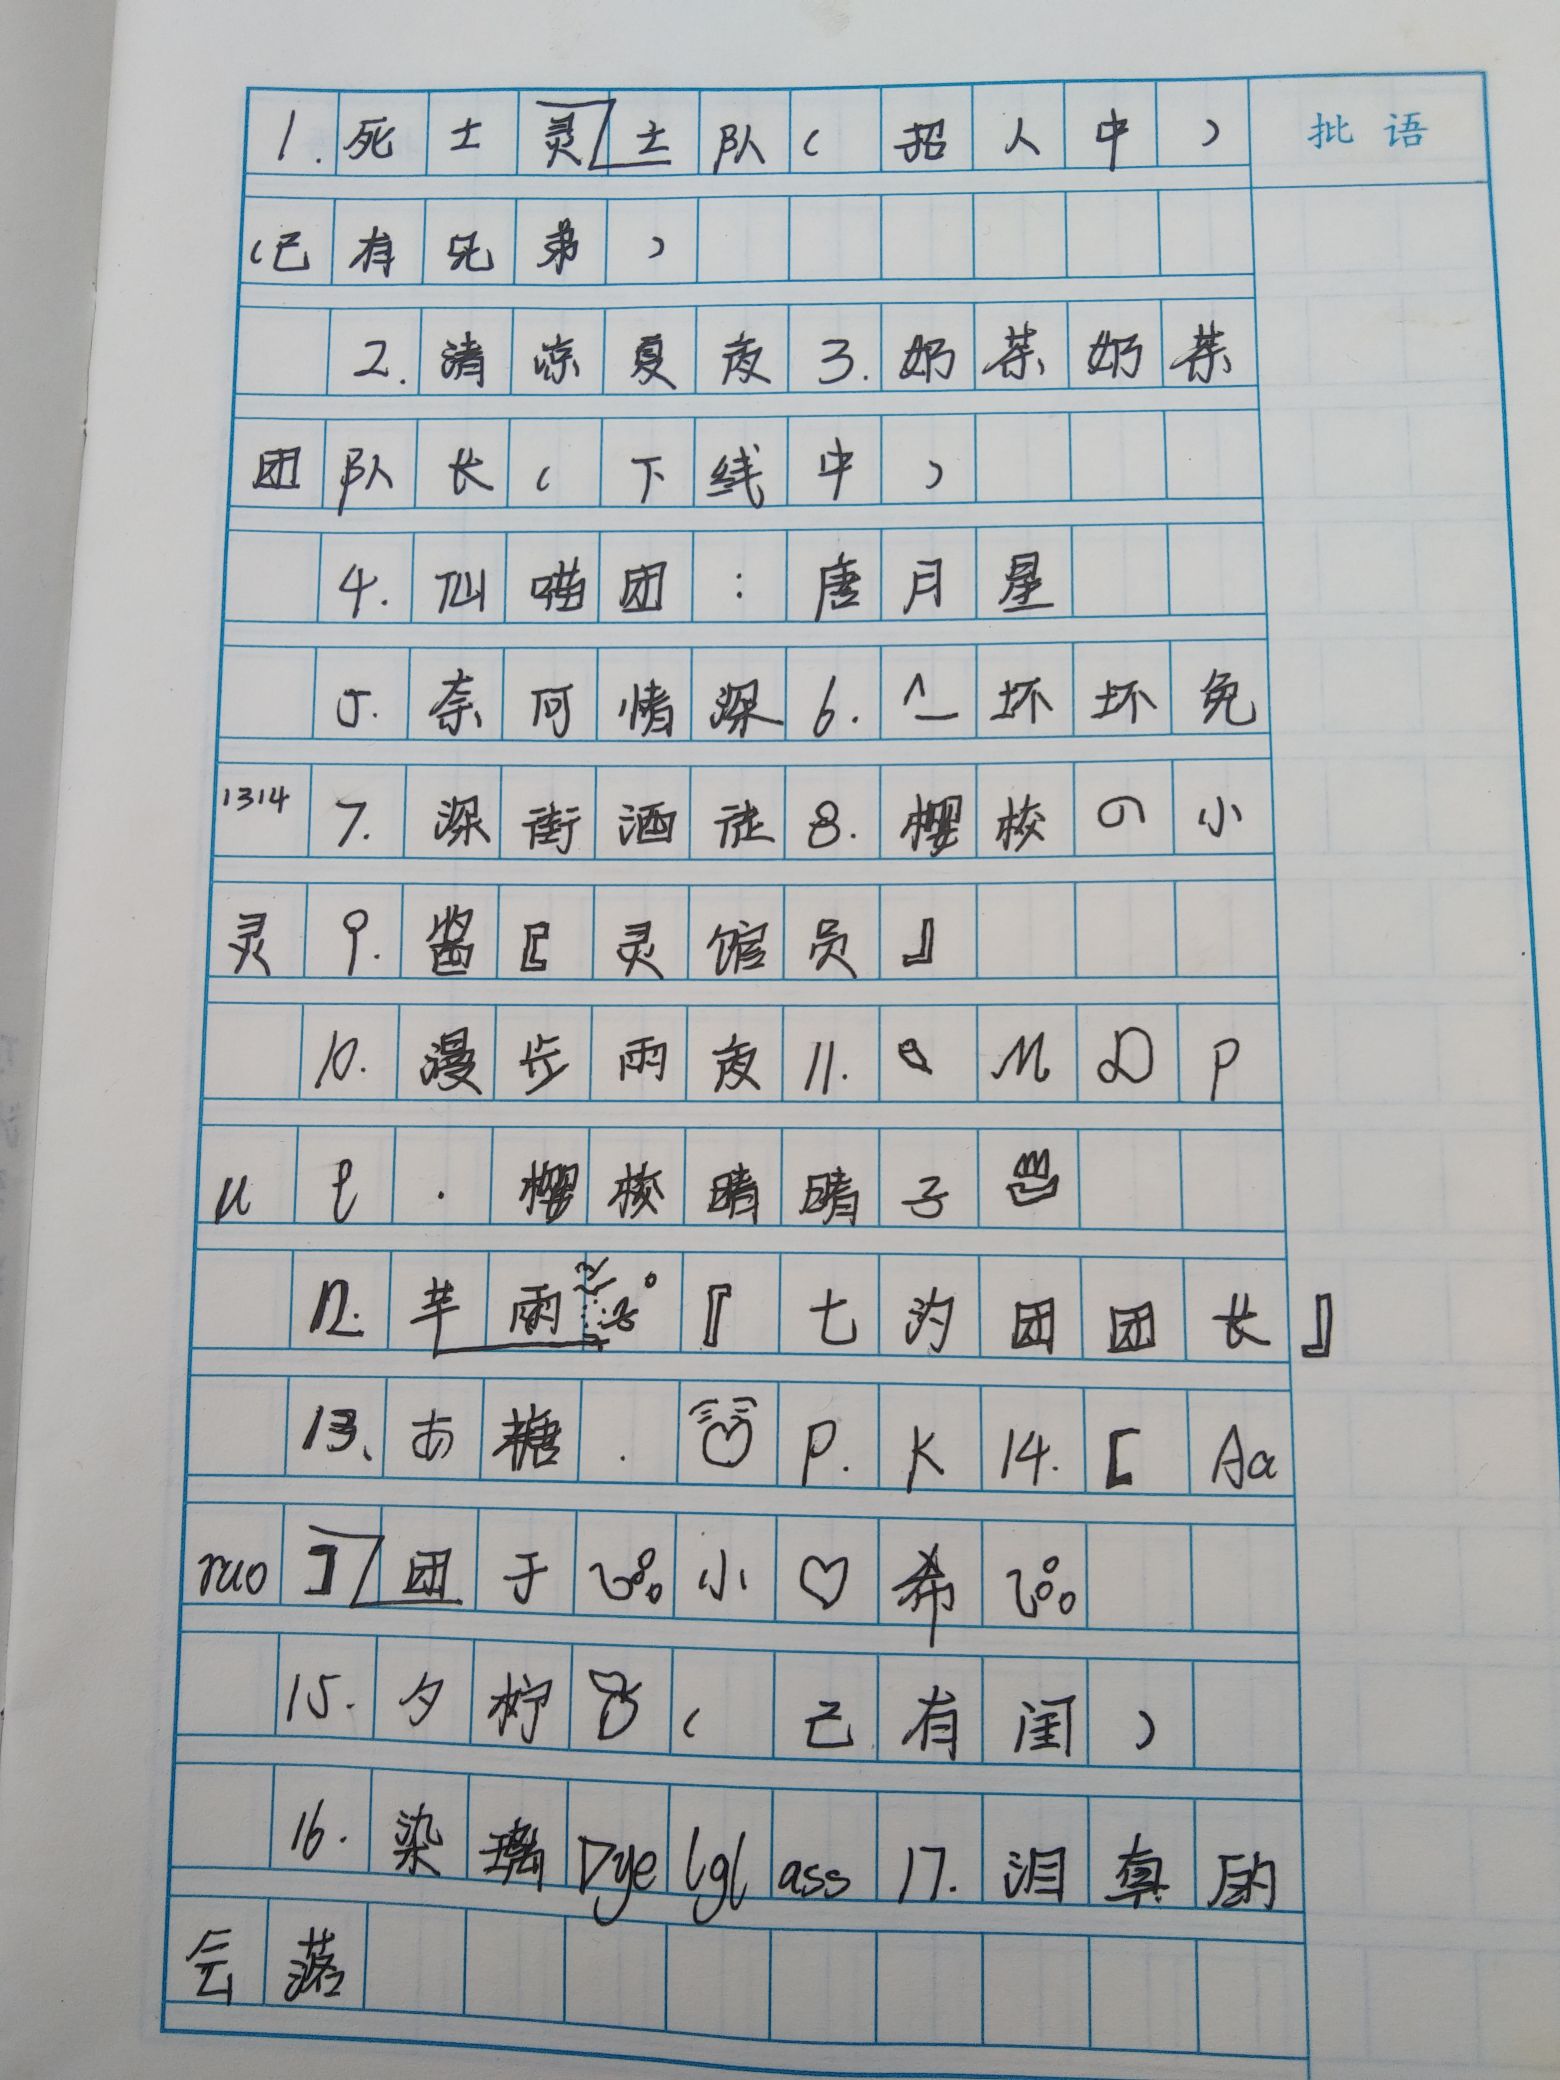 1.死士灵士队(招人中) 批语
(已有兄弟)
2.清凉夏夜3.奶茶奶茶
团队长(下线中)
4.仙喵团:唐月星
5.奈何情深6.^_坏坏兔
1314 7.深街酒徒8.樱校の小
灵9.酱『灵馆员』
10.漫步雨夜11. M D P
u l . 樱校晴晴子
12.芊雨『七沟团团长』
13、あ糖.P.K14.[Aa
ruo]团于小♡希
15.夕柠(已有闺)
16.染璃Dyelglass17.泪真的
会落